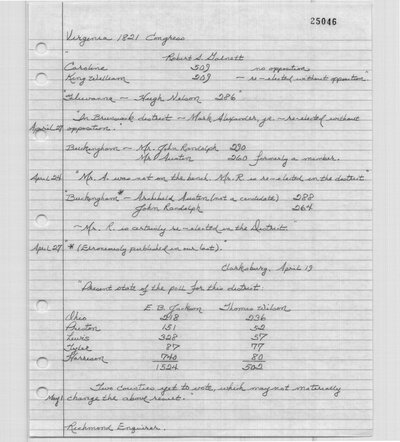 25046
Virginia 1821 Congress
Robert S. Garnett
Caroline 209 no opposition
King William 209 - re-elected without opposition."
"Fluvanna - Hugh Nelson 286"
"In Brunswick district - Mark Alexander, jr. - re-elected without
April 27 opposition."
Buckingham - Mr. John Randolph 230
Mr. Austin 260 formerly a member.
April 24 "Mr. A. was not on the bench. Mr. R is re-elected in the district"
"Buckingham* - Archibald Austin (not a candidate) 288
John Randolph 264
- Mr. R. is certainly re-elected in the District."
April 27 "* (Erroneously published in our last)."
Clarksburg, April 19
"Present state of the poll for this district.
E. B. Jackson Thomas Wilson
Ohio 236
Preston 151 52
Lewis 328 57
Tyler 87 77
Harrison 740 80
1524 502
Two counties yet to vote, which may not materially
May 1 change the above result."
Richmond Enquirer.